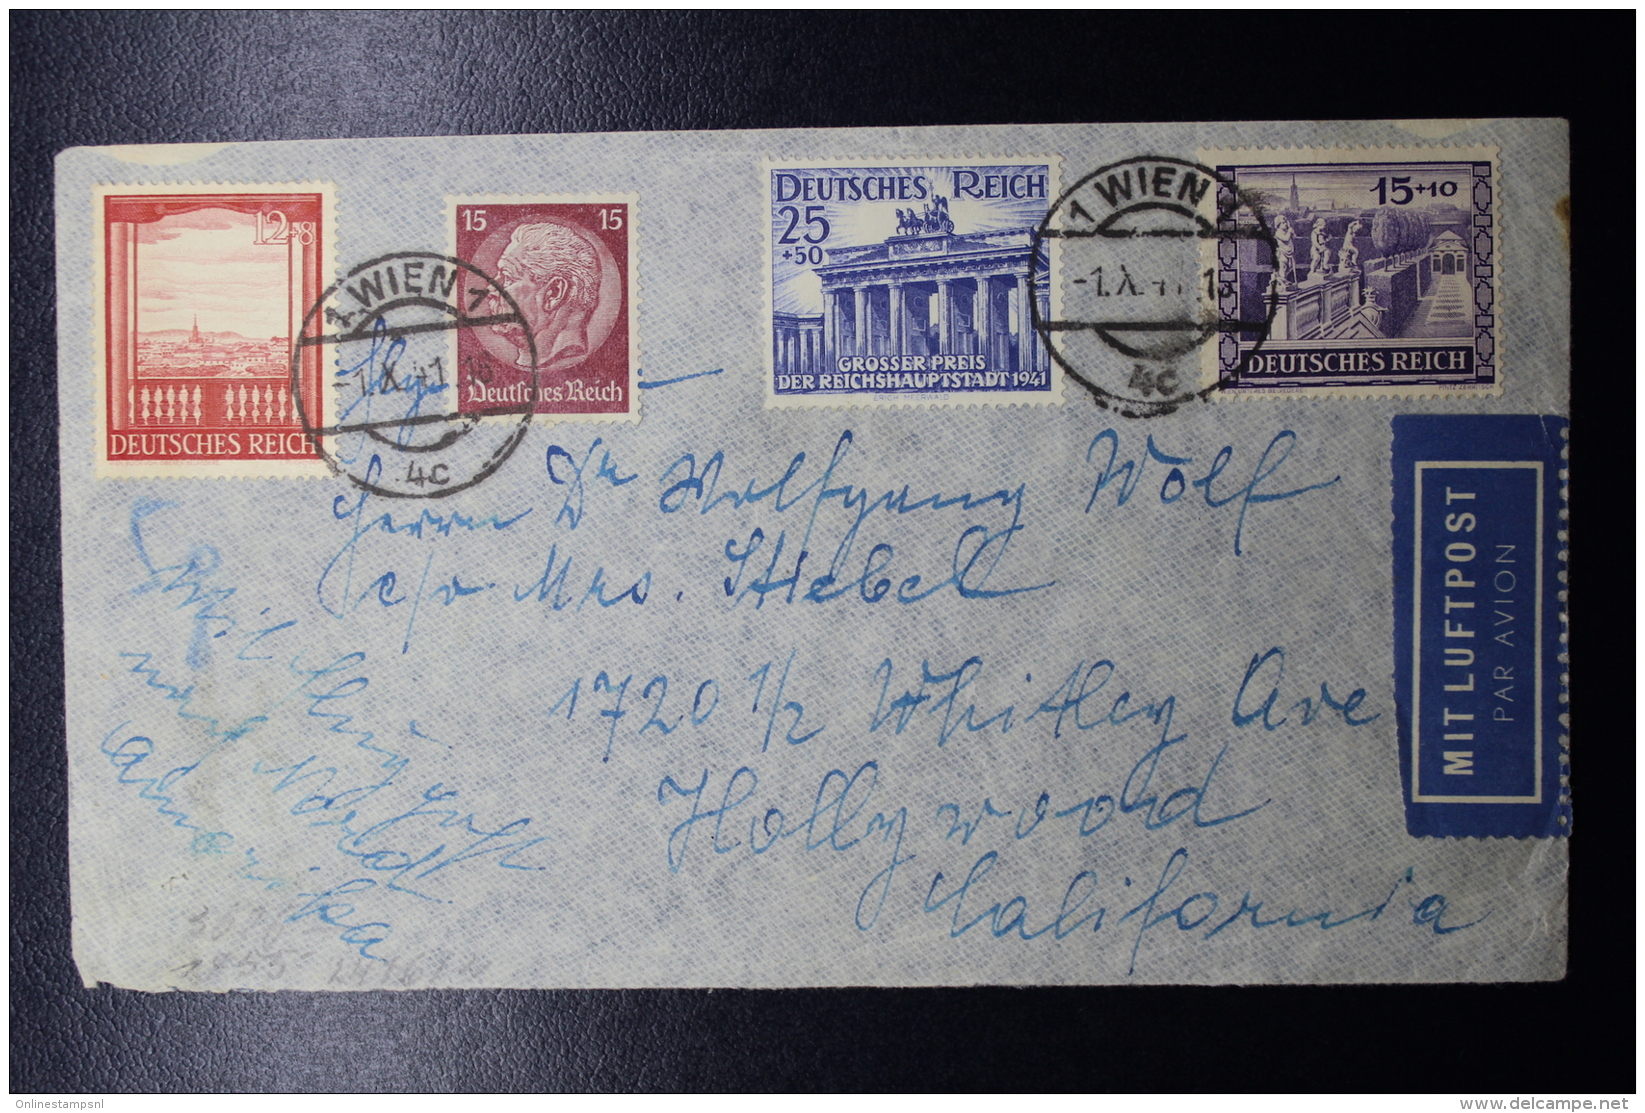 12+8
DEUTSCHES REICH
15 15
Deutsches Reich
DEUTSCHES REICH
25
+50
GROSSER PREIS
DER REICHSHAUPTSTADT 1941
ERICH MEERWALD
15+10
DEUTSCHES REICH
1 WIEN 1
-1.X.41.18
4c
1 WIEN 1
-1.X.41.1
4c
Herrn Dr Wolfgang Wolf
c/o Mrs. Stiebel
1720 1/2 Whitley Ave
Hollywood
California
Mit Flugpost
nach Nord
Amerika
MIT LUFTPOST
PAR AVION
Onlinestampsnl
www.delcampe.net